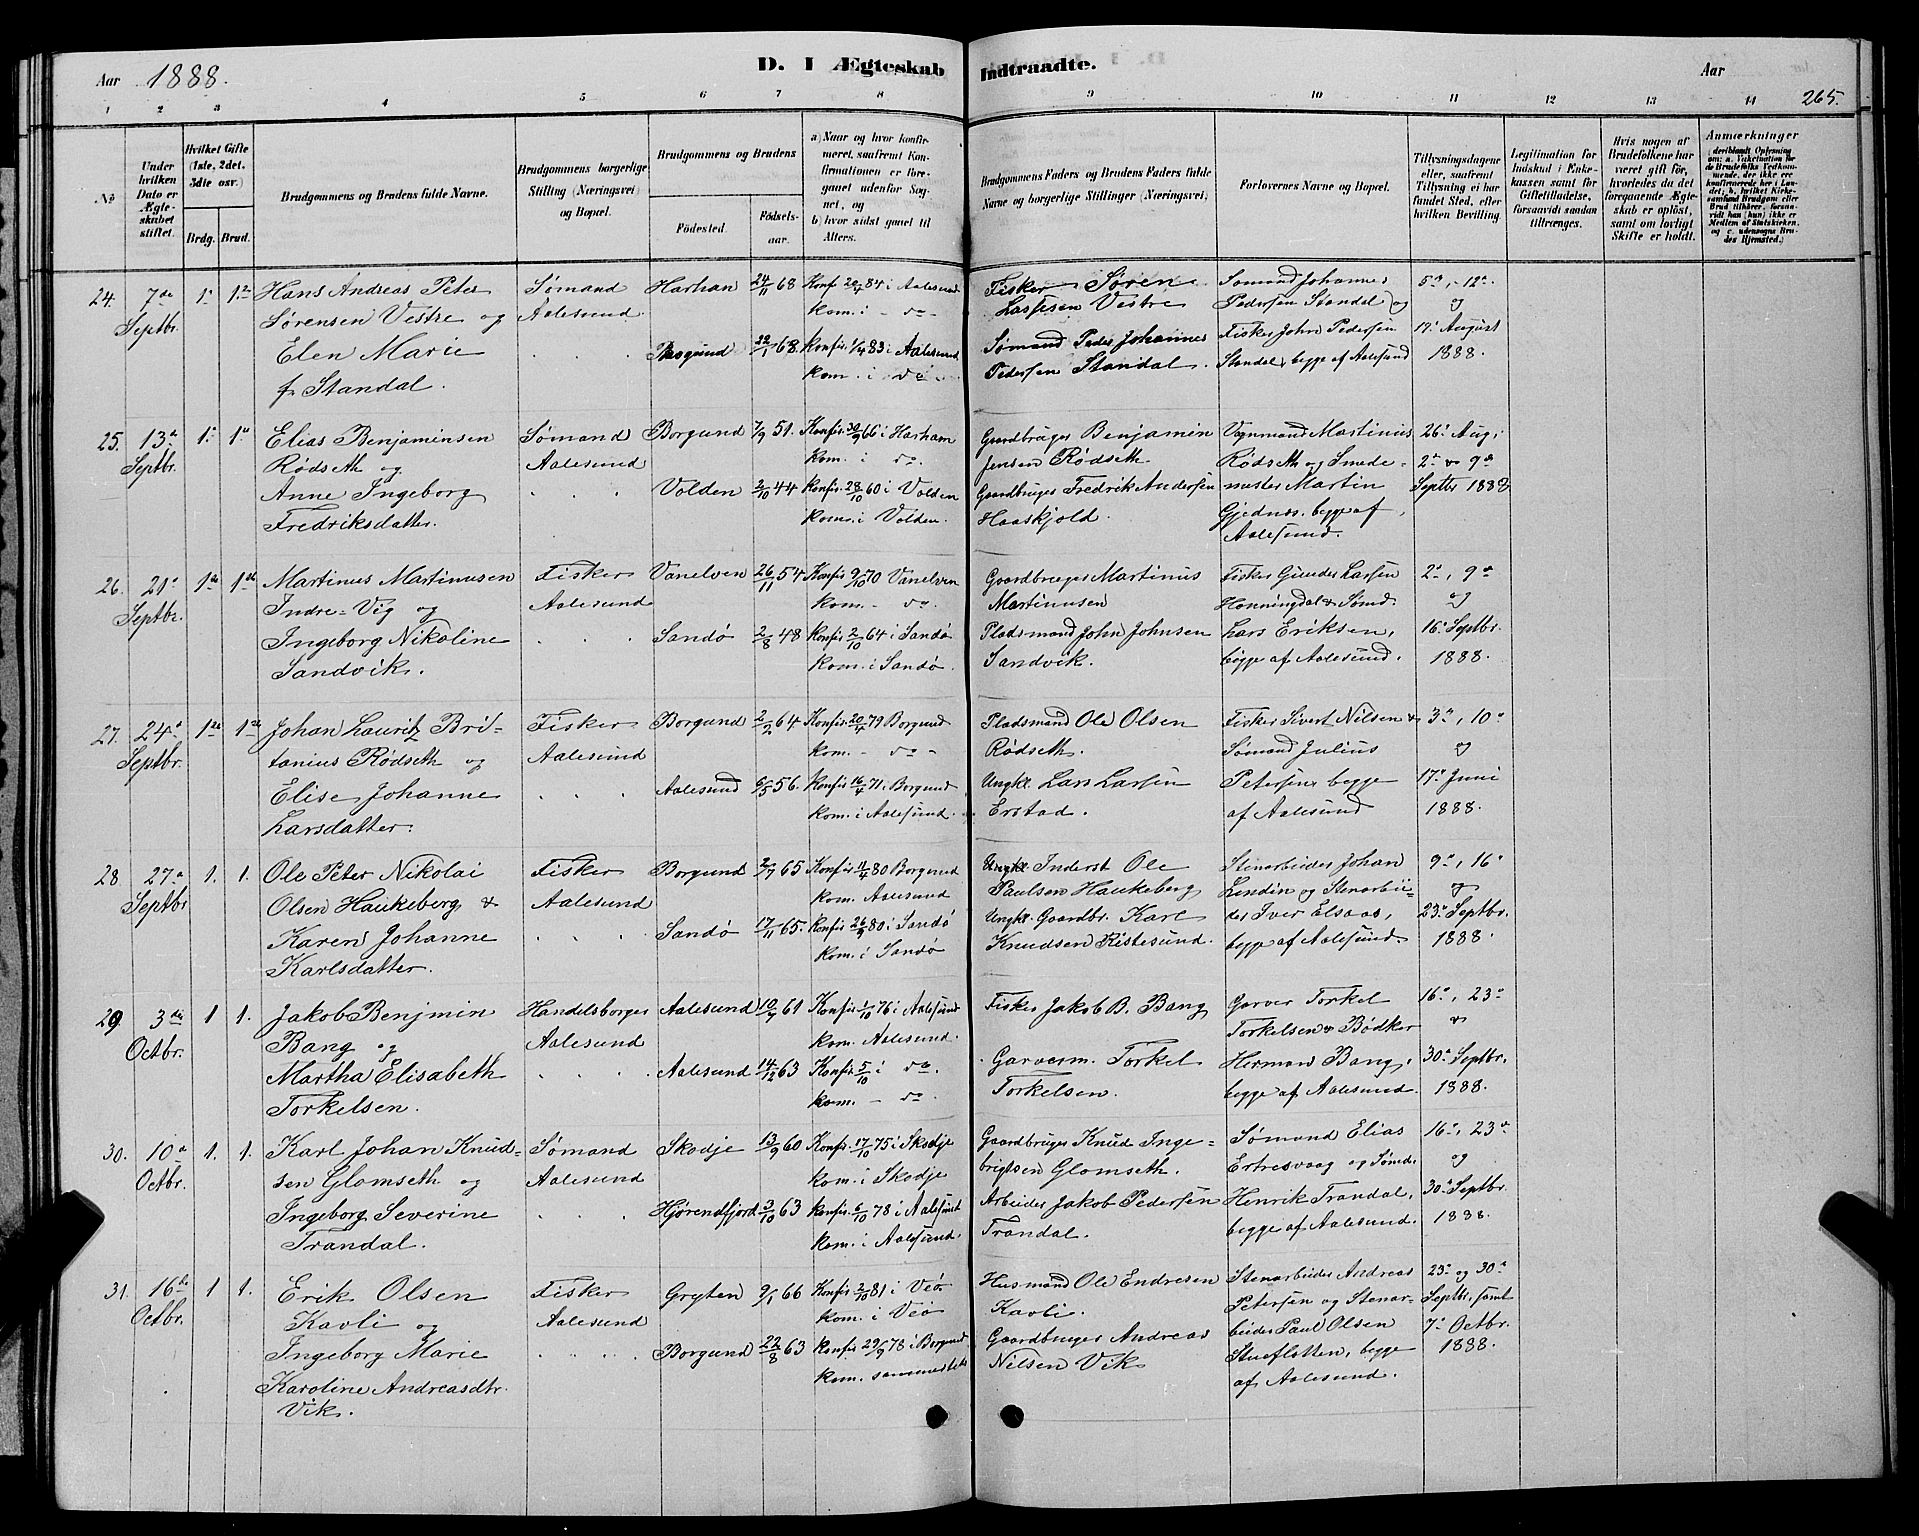 Aar 1888.
D. I Ægteskab Indtraadte.
Aar
265.
1 2 3 4 5 6 7 8 9 10 11 12 13 14
No
Under hvilken Dato er Ægteskabet stiftet.
Hvilket Gifte (1ste, 2det, 3die osv.)
Brdg. Brud.
Brudgommens og Brudens fulde Navne.
Brudgommens borgerlige Stilling (Næringsvei) og Bopæl.
Brudgommens og Brudens
Fødested.
Fødselsaar.
a) Naar og hvor konfirmeret, saafremt Konfirmationen er foregaaet udenfor Sognet, og
b) hvor sidst gaaet til Alters.
Brudgommens Faders og Brudens Faders fulde Navne og borgerlige Stillinger (Næringsvei).
Forlovernes Navne og Bopæl.
Tillysningsdagene eller, saafremt Tillysning ei har fundet Sted, efter hvilken Bevilling.
Legitimation for Indskud i Enkekassen samt for Giftetilladelse, forsaavidt saadan tiltrænges.
Hvis nogen af Brudefolkene har været gift før, hvorledes da det foregaaende Ægteskab er opløst, samt om lovligt Skifte er holdt.
Anmærkninger
24. 7de Septbr. 1. 1.
Hans Andreas Peter
Sørensen Vestre og
Elen Marie
f. Standal.
Sømand
Aalesund.
Harhan 24/11 68
Konf. 20/4 84 i Aalesund
kom. i - do -
Borgund 22/1 68.
Konfir. 1/4 83 i Aalesund
kom. i do
Fisker Søren
Lassesen Vestre
Sømand Peder Johannes
Pedersen Standal.
Sømand Johannes
Pedersen Standal og
Fisker John Pedersen
Standal, begge af Aalesund
5te, 12te
og
19. August
1888.
25. 13de Septbr. 1. 1.
Elias Benjaminsen
Rødseth og
Anne Ingeborg
Fredriksdatter.
Sømand
Aalesund
Borgund 7/9 51.
Konfir. 30/9 66 i Harham
kom. i do.
Volden 2/10 44
Konfir. 28/10 60 i Volden
kom. i Volden.
Gaardbruger Benjamin
Jensen Rødseth.
Gaardbruger Fredrik Andersen
Haaskjold.
Vognmand Martinus
Rødseth og Smede-
mester Martin
Gjednes, begge af
Aalesund.
26. Aug.
2. & 9de
Septbr 1888
26. 21. Septbr. 1ste 1ste
Martinus Martinusen
Indre-Vig og
Ingeborg Nikoline
Sandvik.
Fisker
Aalesund
Vanelven 26/11 54
Konfir. 9/10 70 Vanelven
kom. - do.
Sandø 2/8 48
Konfir. 2/10 64 i Sandø
kom. i Sandø.
Gaardbruger Martinus
Martinusen
Pladsmand John Johnsen
Sandvik.
Fisker Gunder Larsen
Honningdal & Sømd.
Lars Eriksen,
begge af Aalesund.
2., 9de
og
16. Septbr.
1888.
27. 24. Septbr. 1ste 1ste
Johan Lauritz Bri-
tanius Rødseth og
Elise Johanne
Larsdatter.
Fisker
Aalesund
Borgund 2/2 64
Konfir. 20/4 79 Borgund
kom. - do -
Aalesund 6/5 56.
Konfir. 16/4 71 i Borgund
kom. i Aalesund.
Pladsmand Ole Olsen
Rødseth.
Ungkl. Lars Larsen
Erstad.
Fisker Sivert Nilsen &
Sømand Julius
Petersen begge
af Aalesund
3., 10.
og
17. Juni
1888.
28 27. Septbr 1. 1.
Ole Peter Nikolai
Olsen Haukeberg &
Karen Johanne
Karlsdatter.
Fisker
Aalesund
Borgund 2/7 65
Konfir. 11/4 80 Borgund
kom. Aalesund
Sandø 17/11 65.
Konfir. 26/9 80 i Sandø
kom. i Sandø
Ungkl Inderst Ole
Paulsen Haukeberg
Ungkl. Gaardbr. Karl
Knudsen Ristesund.
Stenarbeider Johan
Lindin og Stenarbei-
der Iver Elsaas,
begge af Aalesund.
9., 16
og
23. Septbr.
1888.
29. 3die Octbr. 1 1.
Jakob Benjmin
Bang og
Martha Elisabeth
Torkelsen.
Handelsborger
Aalesund
Aalesund 10/9 61
Konfir. 1/10 76 i Aalesund
kom. Aalesund.
Aalesund 14/12 63
Konfir. 5/10 i do.
kom. - do -
Fisker Jakob B. Bang
Garversv. Torkel
Torkelsen.
Garver Torkel
Torkelsen & Bødker
Herman Bang,
begge af Aalesund.
16., 23.
&
30. Septbr.
1888.
30. 10. Octbr. 1. 1.
Karl Johan Knud-
sen Glomseth og
Ingeborg Severine
Trandal.
Sømand
Aalesund
Skodje 13/9 60
Konfir. 17/10 75 i Skodje
kom. i Skodje
Hjørendfjord 3/10 63
Konfir. 6/10 78 i Aalesund
kom. i Aalesund.
Gaardbruger Knud Inge-
brigtsen Glomseth.
Arbeider Jakob Pedersen
Trandal.
Sømand Elias
Ertresvaag og Sømd.
Henrik Trandal,
begge af Aalesund.
16., 23.
og
30. Septbr.
1888.
31. 16de Octbr. 1 1.
Erik Olsen
Kavli og
Ingeborg Marie
Karoline Andreasdtr.
Vik.
Fisker
Aalesund
Gryten 9/1 66
Konfir. 2/10 81 i Veø
kom. i Veø
Borgund 22/8 63
Konfir. 29/9 78 i Borgund
kom. sammesteds
Husmand Ole Endresen
Kavli.
Gaardbruger Andreas
Nilsen Vik
Stenarbeider Andreas
Petersen og Stenar-
beider Paul Olsen
Stueflotten, begge
af Aalesund.
23. og 30.
Septbr, samt
7. Octbr.
1888.